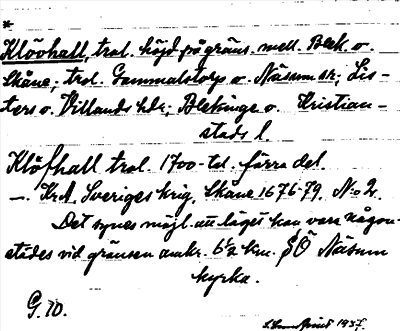 *
Klövhall, trol. höjd på gräns. mell. Blek. o.
Skåne, trol. Gammalstorps o. Näsum sn; Lis-
ters o. Villands hdr; Blekinge o. Kristian-
stads l
Klöfhall trol. 1700-td. förra del.
—. KrA Sveriges krig. Skåne 1676-79. No 2.
Det synes möjl. att läget kan vara någon-
städes vid gränsen omkr. 6½ km. SÖ Näsum
kyrka.
G. 10.
1937.